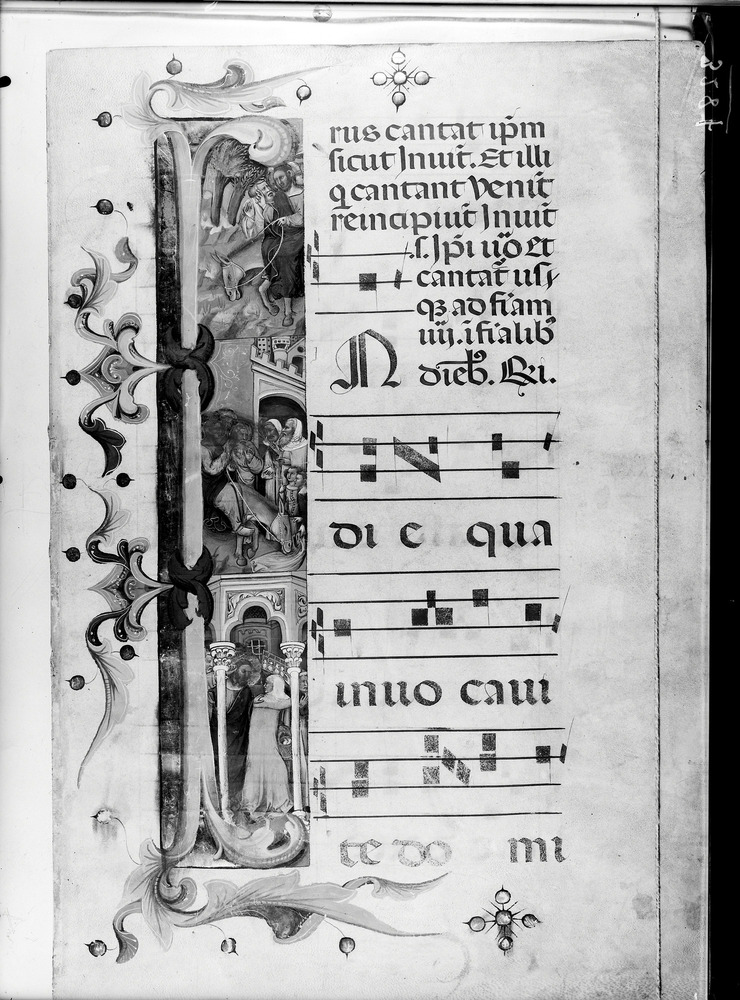 rus cantat ip̄m
sicut Inuit̄. Et illi
q̄ cantant venit̄
reincipiūt Inuit̄
s. Ip̄i u̇o et
cantat̄ usq
qz ad fiām
iiij. i fialib᷒
N dieb᷒.
di e qua
in uo caui
te do mi
3284